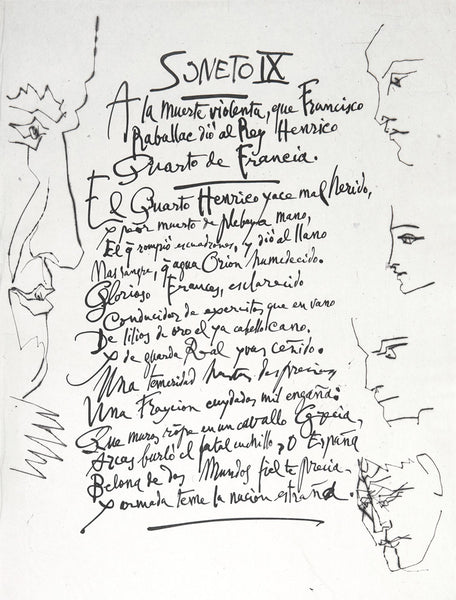 SONETO IX
A la muerte violenta, que Francisco
Raballac dió al Rey Henrico
Quarto de Francia.
El Quarto Henrico yace mal herido,
y peor muerto de plebeya mano,
El q̄ rompió escuadrones, y dió al llano
Mas sangre, q̄ agua Orion humedecido.
Glorioso Frances, esclarecido
Conducidor de exercitos que en vano
De lilios de oro el ya cabello cano.
y de guarda Real yvas ceñido.
Una temeridad hastas desprecia,
Una Traycion cuydados mil engaña:
Que muros rompe en un caballo Grecia,
Arcas burló el fatal cuchillo, O España
Belona de dos Mundos fiel te precia
y armada teme la nacion estraña.